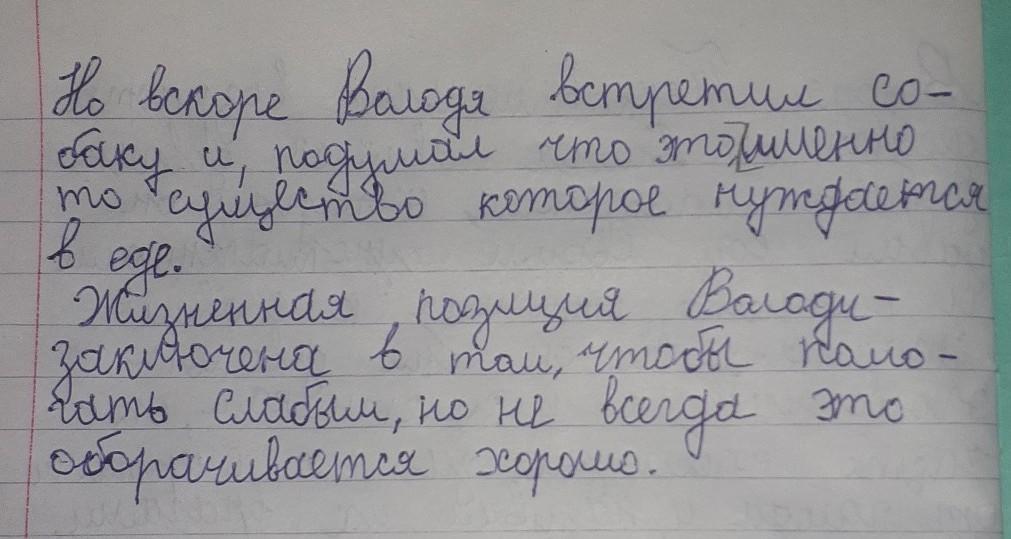 Но вскоре Володя встретил со-
баку и, подумал что это именно
то существо которое нуждается
в еде.
Жизненная позиция Володи-
заключена в том, чтобы помо-
гать слабым, но не всегда это
оборачивается хорошо.